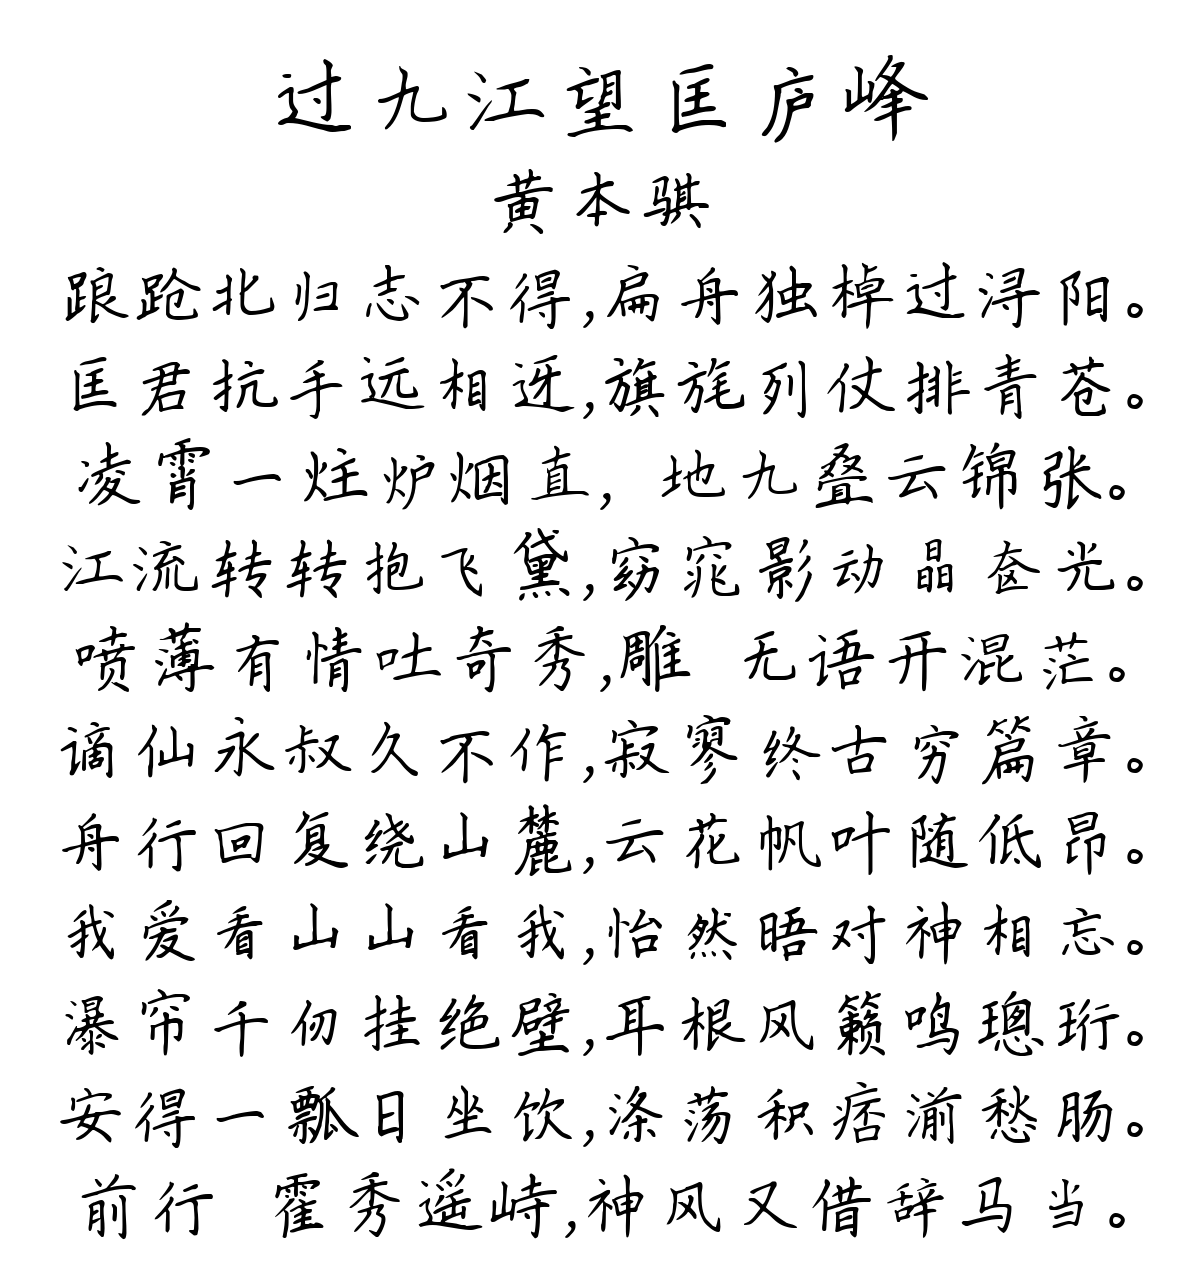 过九江望匡庐峰
黄本骐
踉跄北归志不得,扁舟独棹过浔阳。
匡君抗手远相迓,旗旄列仗排青苍。
凌霄一炷炉烟直,地九叠云锦张。
江流转转抱飞黛,窈窕影动晶奁光。
喷薄有情吐奇秀,雕 无语开混茫。
谪仙永叔久不作,寂寥终古穷篇章。
舟行回复绕山麓,云花帆叶随低昂。
我爱看山山看我,怡然晤对神相忘。
瀑帘千仞挂绝壁,耳根风籁鸣璁珩。
安得一瓢日坐饮,涤荡积痞湔愁肠。
前行 霍秀遥峙,神风又借辞马当。